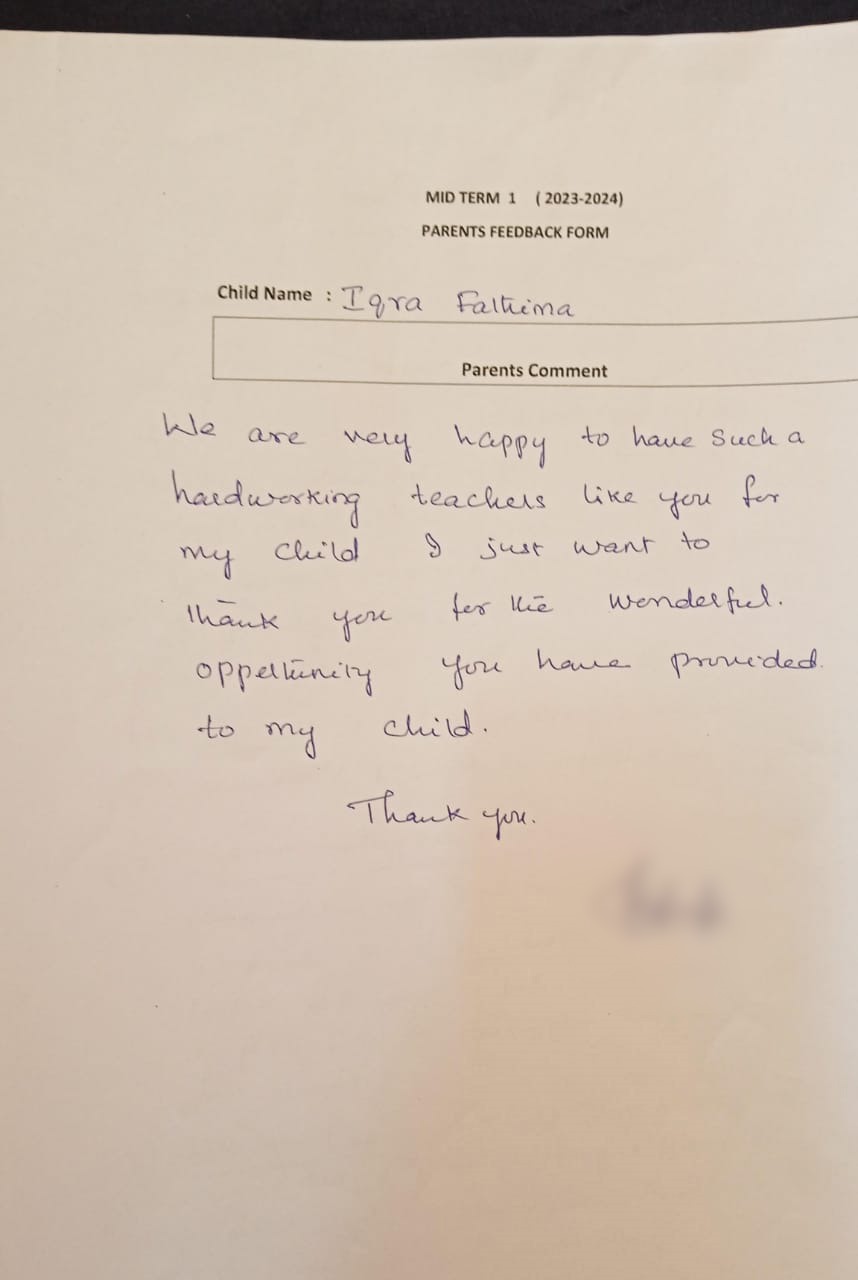 MID TERM 1 ( 2023-2024)
PARENTS FEEDBACK FORM
Child Name : Iqra Fathima
Parents Comment
We are very happy to have such a
hardworking teachers like you for
my child I just want to
thank you for the wonderful.
oppertunity you have provided.
to my child.
Thank you.